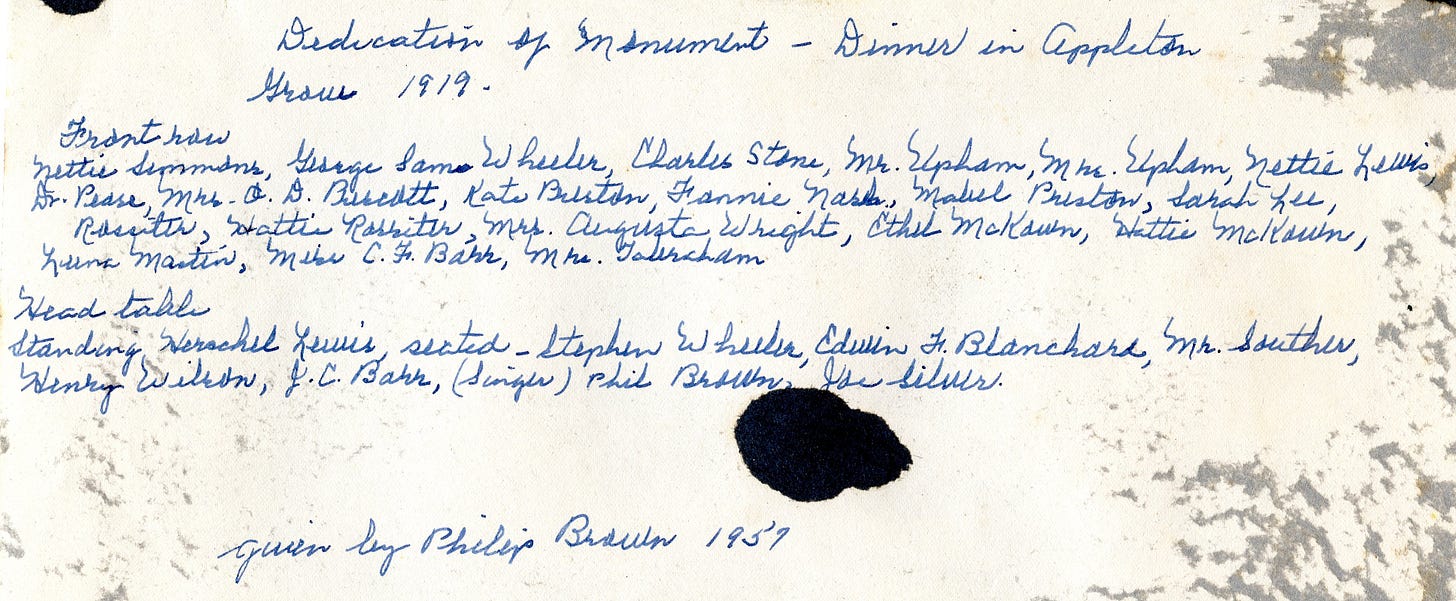 Dedication of Monument – Dinner in Appleton
Grove 1919.
Front row
Nettie Simmons, George Sams Wheeler, Charles Stone, Mr. Upham, Mrs. Upham, Nettie Lewis,
Dr. Pease, Mrs. O. D. Buscott, Kate Preston, Fannie Nash, Mabel Preston, Sarah Lee,
Rossiter, Hattie Rossiter, Mrs. Augusta Wright, Ethel McKown, Hattie McKown,
Martin, Miss C. F. Barr, Mrs.
Head table
Standing, Herschel Lewis, seated – Stephen Wheeler, Edwin F. Blanchard, Mr. Souther,
Henry Wilson, J. C. Barr, (Singer) Phil Brown, Joe Silver.
given by Philip Brown 1957